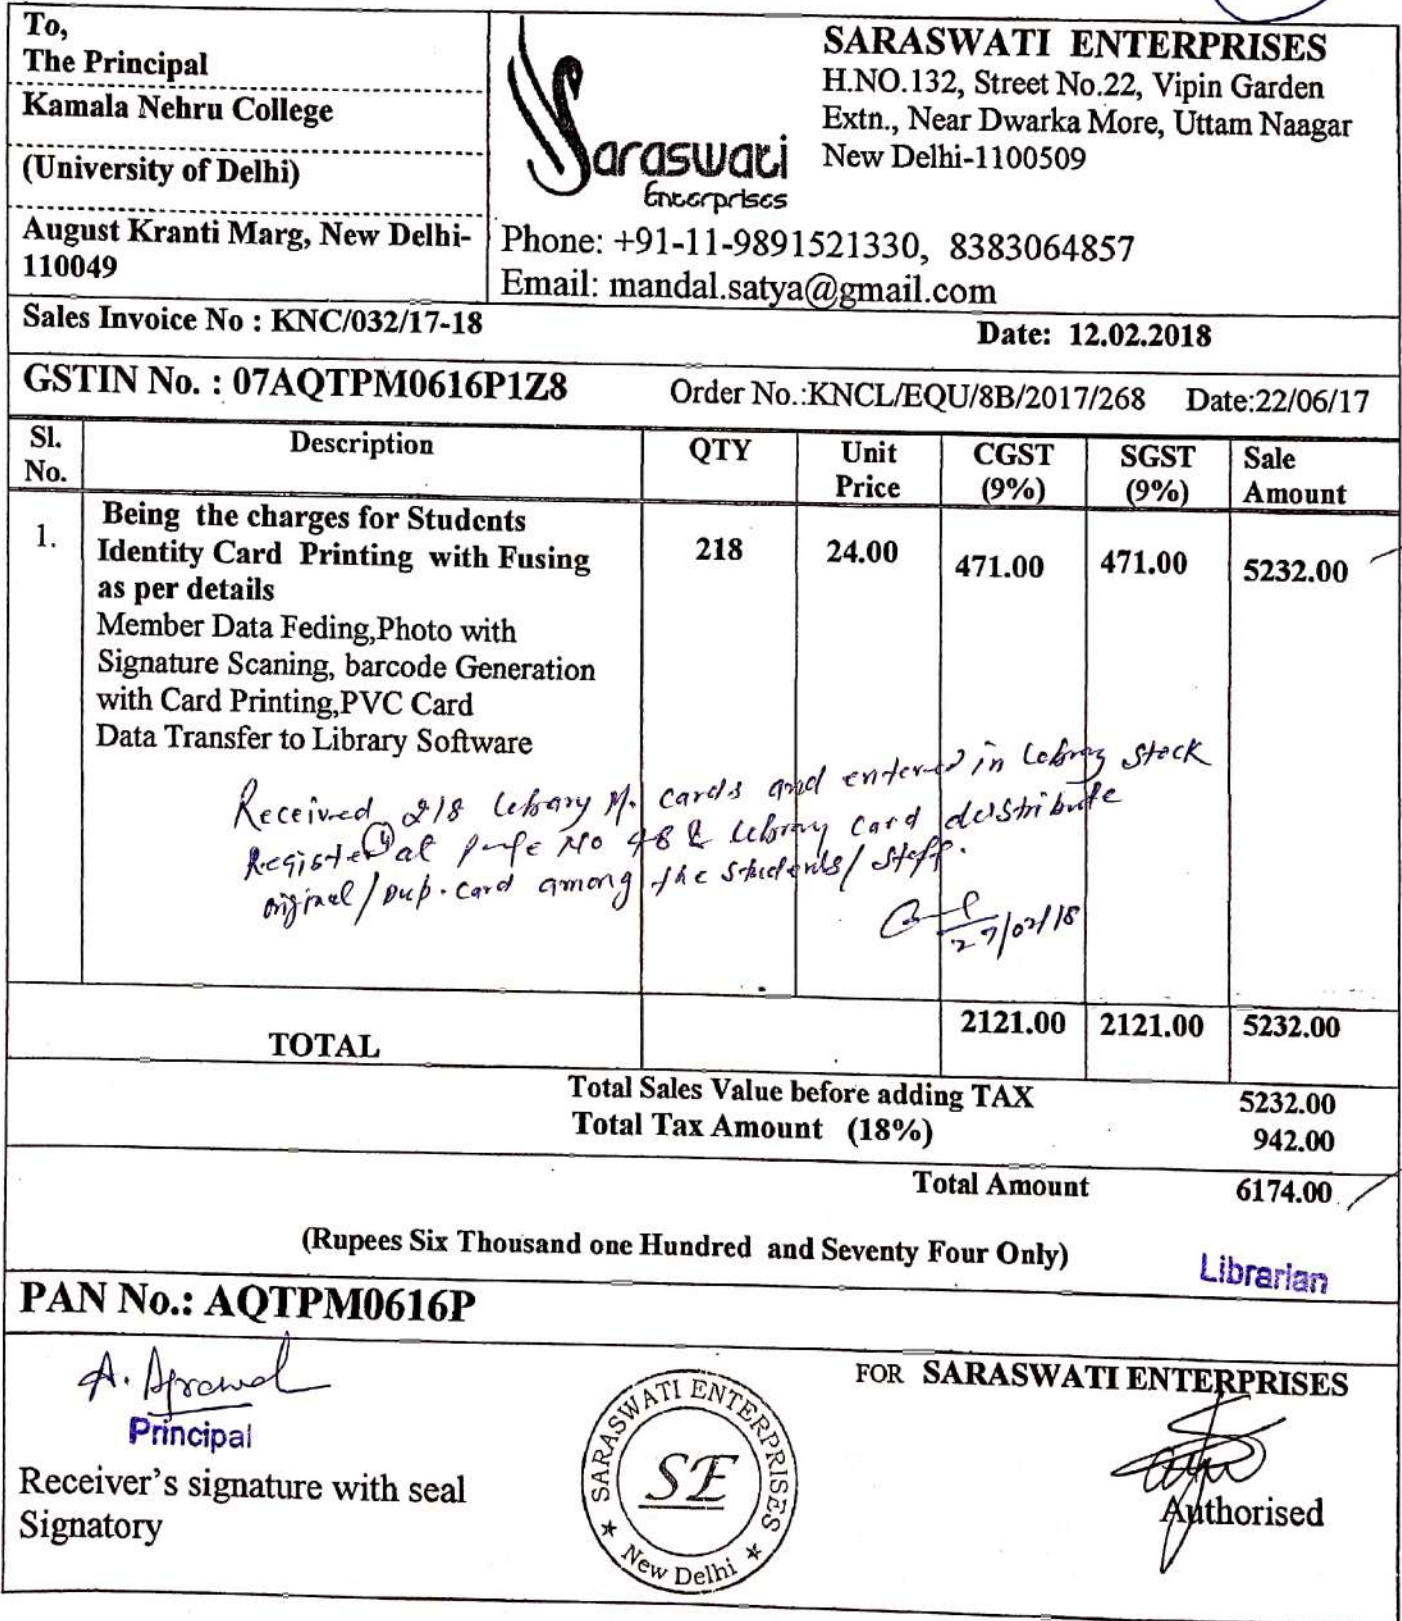 To,
The Principal
Kamala Nehru College
(University of Delhi)
August Kranti Marg, New Delhi-
110049
Saraswati
Enterprises
SARASWATI ENTERPRISES
H.NO.132, Street No.22, Vipin Garden
Extn., Near Dwarka More, Uttam Naagar
New Delhi-1100509
Phone: +91-11-9891521330, 8383064857
Email: mandal.satya@gmail.com
Sales Invoice No : KNC/032/17-18 Date: 12.02.2018
GSTIN No. : 07AQTPM0616P1Z8 Order No.:KNCL/EQU/8B/2017/268 Date:22/06/17
Sl. No. Description QTY Unit Price CGST (9%) SGST (9%) Sale Amount
1. Being the charges for Students
Identity Card Printing with Fusing 218 24.00 471.00 471.00 5232.00
as per details
Member Data Feding,Photo with
Signature Scaning, barcode Generation
with Card Printing,PVC Card
Data Transfer to Library Software
Received 218 M. cards and entered in stock
Register 4 at No 48 & card
/ Dup. card among the students/ staff.
27/02/18
TOTAL 2121.00 2121.00 5232.00
Total Sales Value before adding TAX 5232.00
Total Tax Amount (18%) 942.00
Total Amount 6174.00
(Rupees Six Thousand one Hundred and Seventy Four Only)
Librarian
PAN No.: AQTPM0616P
A. Agrawal
Principal
Receiver's signature with seal
Signatory
SARASWATI ENTERPRISES
SE
New Delhi
FOR SARASWATI ENTERPRISES
Authorised